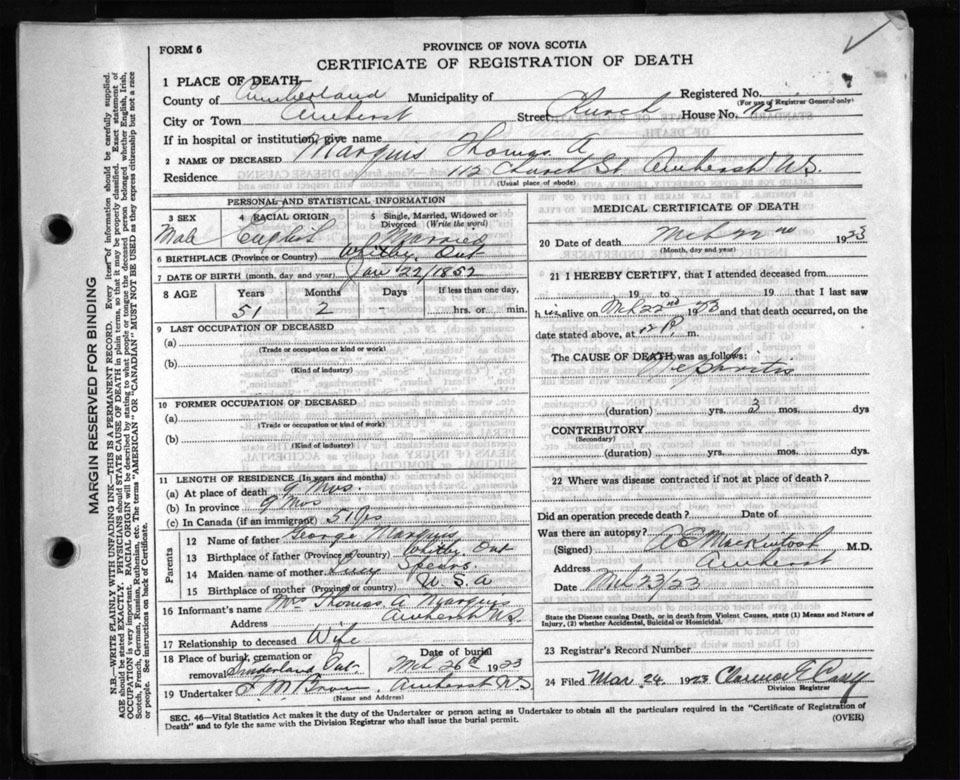 FORM 6
PROVINCE OF NOVA SCOTIA
CERTIFICATE OF REGISTRATION OF DEATH
1 PLACE OF DEATH
County of Cumberland Municipality of Registered No.
(For use of Registrar General only)
City or Town Amherst Street Church House No.
If in hospital or institution, give name
2 NAME OF DECEASED Marquis Thomas A
Residence 112 Church St Amherst N.S.
(Usual place of abode)
PERSONAL AND STATISTICAL INFORMATION
3 SEX 4 RACIAL ORIGIN 5 Single, Married, Widowed or Divorced (Write the word)
Male English Married
6 BIRTHPLACE (Province or Country) Whitby, Ont
7 DATE OF BIRTH (month, day and year) Jan 22/1852
8 AGE Years Months Days If less than one day,
51 2 hrs. or min.
9 LAST OCCUPATION OF DECEASED
(a)
(Trade or occupation or kind or work)
(b)
(Kind of industry)
10 FORMER OCCUPATION OF DECEASED
(a)
(Trade or occupation or kind of work)
(b)
(Kind of industry)
11 LENGTH OF RESIDENCE (In years and months)
(a) At place of death 9 Mos.
(b) In province 9 Mos
(c) In Canada (if an immigrant) 51 yrs
Parents
12 Name of father George Marquis
13 Birthplace of father (Province or country) Whitby, Ont
14 Maiden name of mother Lucy Spears
15 Birthplace of mother (Province or country) U.S.A
16 Informant's name Mrs Thomas A Marquis
Address Amherst N.S.
17 Relationship to deceased Wife
18 Place of burial, cremation or removal Sunderland Ont. Date of burial Mch 26th 1923
19 Undertaker F M Brown Amherst N.S
(Name and Address)
MEDICAL CERTIFICATE OF DEATH
20 Date of death Mch 22nd 1923
(Month, day and year)
21 I HEREBY CERTIFY, that I attended deceased from
19 to 19 that I last saw
h im alive on Mch 22nd 1923 and that death occurred, on
date stated above, at 12 P. m.
The CAUSE OF DEATH was as follows:
Nephritis
(duration) yrs. 3 mos. dys
CONTRIBUTORY
(Secondary)
(duration) yrs. mos. dys.
22 Where was disease contracted if not at place of death?
Did an operation precede death? Date of
Was there an autopsy?
(Signed) A E Mackintosh M.D.
Address Amherst
Date Mch 23/23
State the Disease causing Death, or in death from Violent Causes, state (1) Means and Nature of Injury, (2) whether Accidental, Suicidal or Homicidal.
23 Registrar's Record Number
24 Filed Mar 24 1923 Clarence E Casey
Division Registrar
SEC. 46—Vital Statistics Act makes it the duty of the Undertaker or person acting as Undertaker to obtain all the particulars required in the "Certificate of Registration of
Death" and to fyle the same with the Division Registrar who shall issue the burial permit.
(OVER)
MARGIN RESERVED FOR BINDING
N.B.—WRITE PLAINLY WITH UNFADING INK—THIS IS A PERMANENT RECORD. Every item of information should be carefully supplied.
AGE should be stated EXACTLY. PHYSICIANS should STATE CAUSE OF DEATH in plain terms, so that it may be properly classified. Exact statement of
OCCUPATION is very important. RACIAL ORIGIN will be described by stating to what people or tongue the deceased person belonged whether English, Irish,
Scotch, French, German, Russian, Ruthenian, etc. The terms "AMERICAN" OR "CANADIAN" MUST NOT BE USED as they express citizenship but not a race
or people. See instructions on back of Certificate.